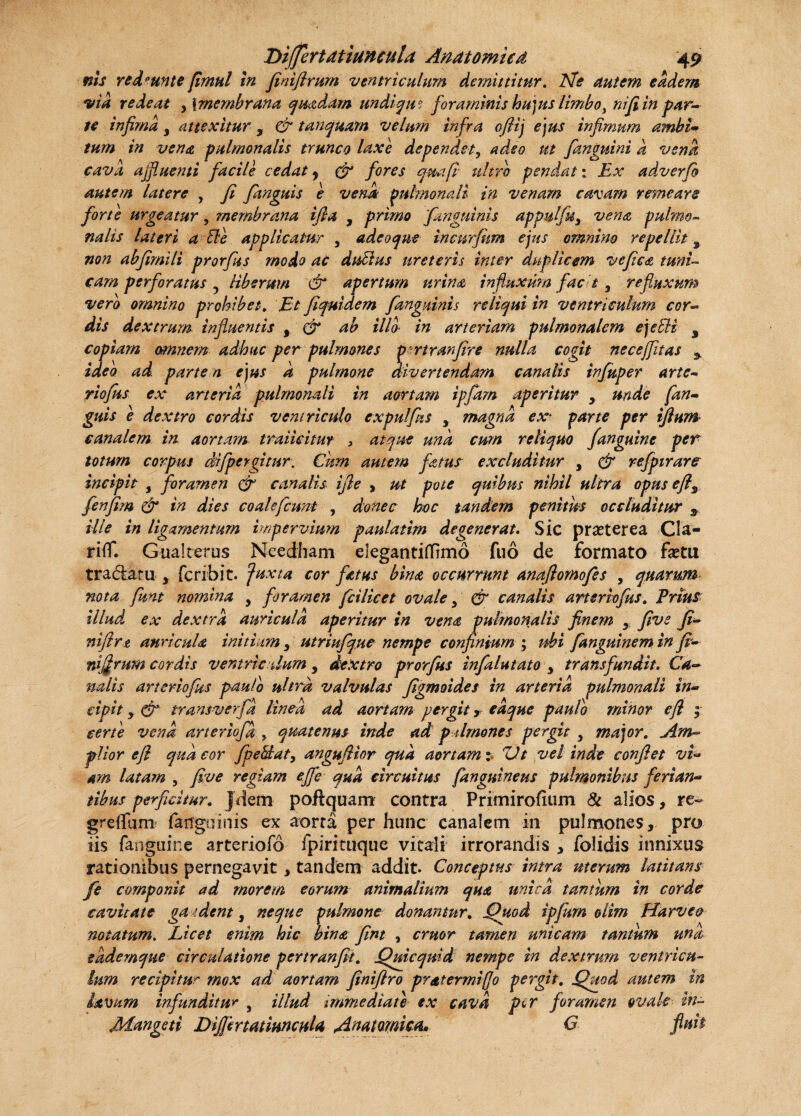 Dissertatiuncula Anatomica 49
nis redeunte simul in sinistrum ventriculum demittitur. Ne autem eâdem
viâ redeat , membrana quædam undique foraminis hujus limbo, nisi in par-
te infimâ , attexitur , & tanquam velum infra ostij ejus infimum ambi-
tum in venæ pulmonalis trunco laxè dependet, adeo ut sanguini à venâ
cavâ affluenti facilè cedat , & fores quasi ultrò pendat : Ex adverso
autem latere , si sanguis è venâ pulmonali in venam cavam remeare
fortè urgeatur , membrana ista , primo sanguinis appulsu, venæ pulmo-
nalis lateri a ctè applicatur , adeoque incursum ejus omnino repellit ,
non absimili prorsus modo ac ductus ureteris inter duplicem vesicæ tuni-
cam perforatus , liberum & apertum urinæ influxum facit , refluxum
verò omnino prohibet. Et siquidem sanguinis reliqui in ventriculum cor-
dis dextrum influentis , & ab illo in arteriam pulmonalem ejecti ,
copiam omnem adhuc per pulmones pertransire nulla cogit necessitas ,
ideò ad partem ejus à pulmone divertendam canalis insuper arte-
riosus ex arteriâ pulmonali in aortam ipsam aperitur , unde san-
guis è dextro cordis ventriculo expulsus , magnâ ex parte per istum
canalem in aortam traiicitur , atque unâ cum reliquo sanguine per
totum corpus dispergitur. Cùm autem fœtus excluditur , & respirare
incipit , foramen & canalis iste , ut pote quibus nihil ultra opus est,
sensim & in dies coalescunt , donec hoc tandem penitùs occluditur ,
ille in ligamentum impervium paulatim degenerat. Sic præterea Cla-
riss. Gualterus Needham elegantissimò suò de formato fætu
tractatu , scribit. Juxta cor fætus binæ occurrunt anastomoses , quarum
nota sunt nomina , foramen scilicet ovale , & canalis arteriosus. Priùs
illud ex dextrâ auriculâ aperitur in venæ pulmonalis finem , sive si-
nistræ auriculæ initium, utriusque nempe confinium ; ubi sanguinem in si-
nistrum cordis ventriculum , dextro prorsus insalutato , transfundit. Ca-
nalis arteriosus paulò ultrà valvulas sigmoides in arteriâ pulmonali in-
cipit , & transversâ lineâ ad aortam pergit, eâque paulò minor est ;
certè venâ arteriosâ , quatenus inde ad pulmones pergit , major. Am-
plior est quà cor spectat, angustior quà aortam : Ut vel inde constet vi-
am latam , sive regiam esse quâ circuitus sanguineus pulmonibus ferian-
tibus perficitur. Idem postquam contra Primirosium & alios, re-
gressum sanguinis ex aortâ per hunc canalem in pulmones, pro
iis sanguine arteriosò spirituque vitali irrorandis , solidis innixus
rationibus pernegavit , tandem addit. Conceptus intra uterum latitans
se componit ad morem eorum animalium quæ unicâ tantùm in corde
cavitate gaudent , neque pulmone donantur. Quod ipsum olim Harveo
notatum. Licet enim hic binæ sint , cruor tamen unicam tantùm unâ
eâdemque circulatione pertransit. Quicquid nempe in dextrum ventricu-
lum recipitur mox ad aortam sinistro prætermisso pergit. Quod autem in
lævum infunditur , illud immediatè ex cavâ per foramen ovale in-
Mangeti Dissertatiuncula Anatomica. G fluit